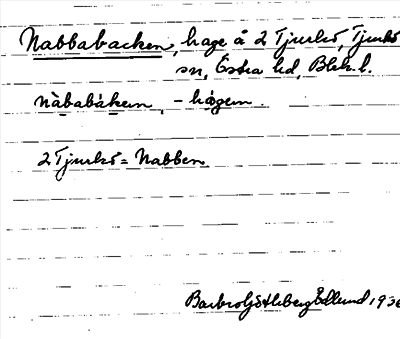 Nabbabacken, hage å 2 Tjurkö, Tjurkö
sn, Östra hd, Blek. l.
nàbabáken, - hágen.
2 Tjurkö = Nabben
Barbro Edlund 1936